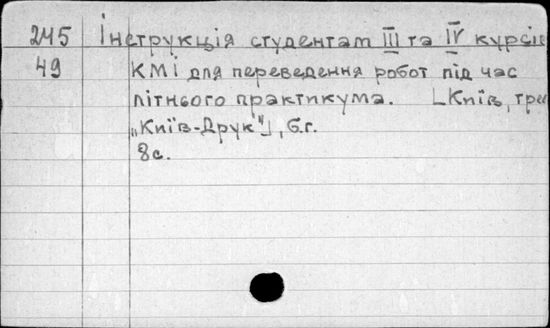 245 Інструкція студентам III та IV курсів
49 КМІ для переведення робот під час
літнього практикума. [Київ, трест
„Київ-Друк"], б.г.
8с.